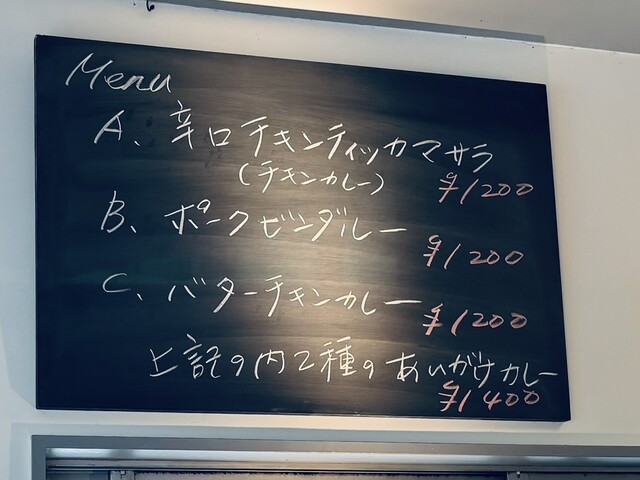 Menu
A、辛口チキンティッカマサラ
(チキンカレー) ¥1200
B、ポークビンダルー
¥1200
C、バターチキンカレー
¥1200
上記の内2種のあいがけカレー
¥1400